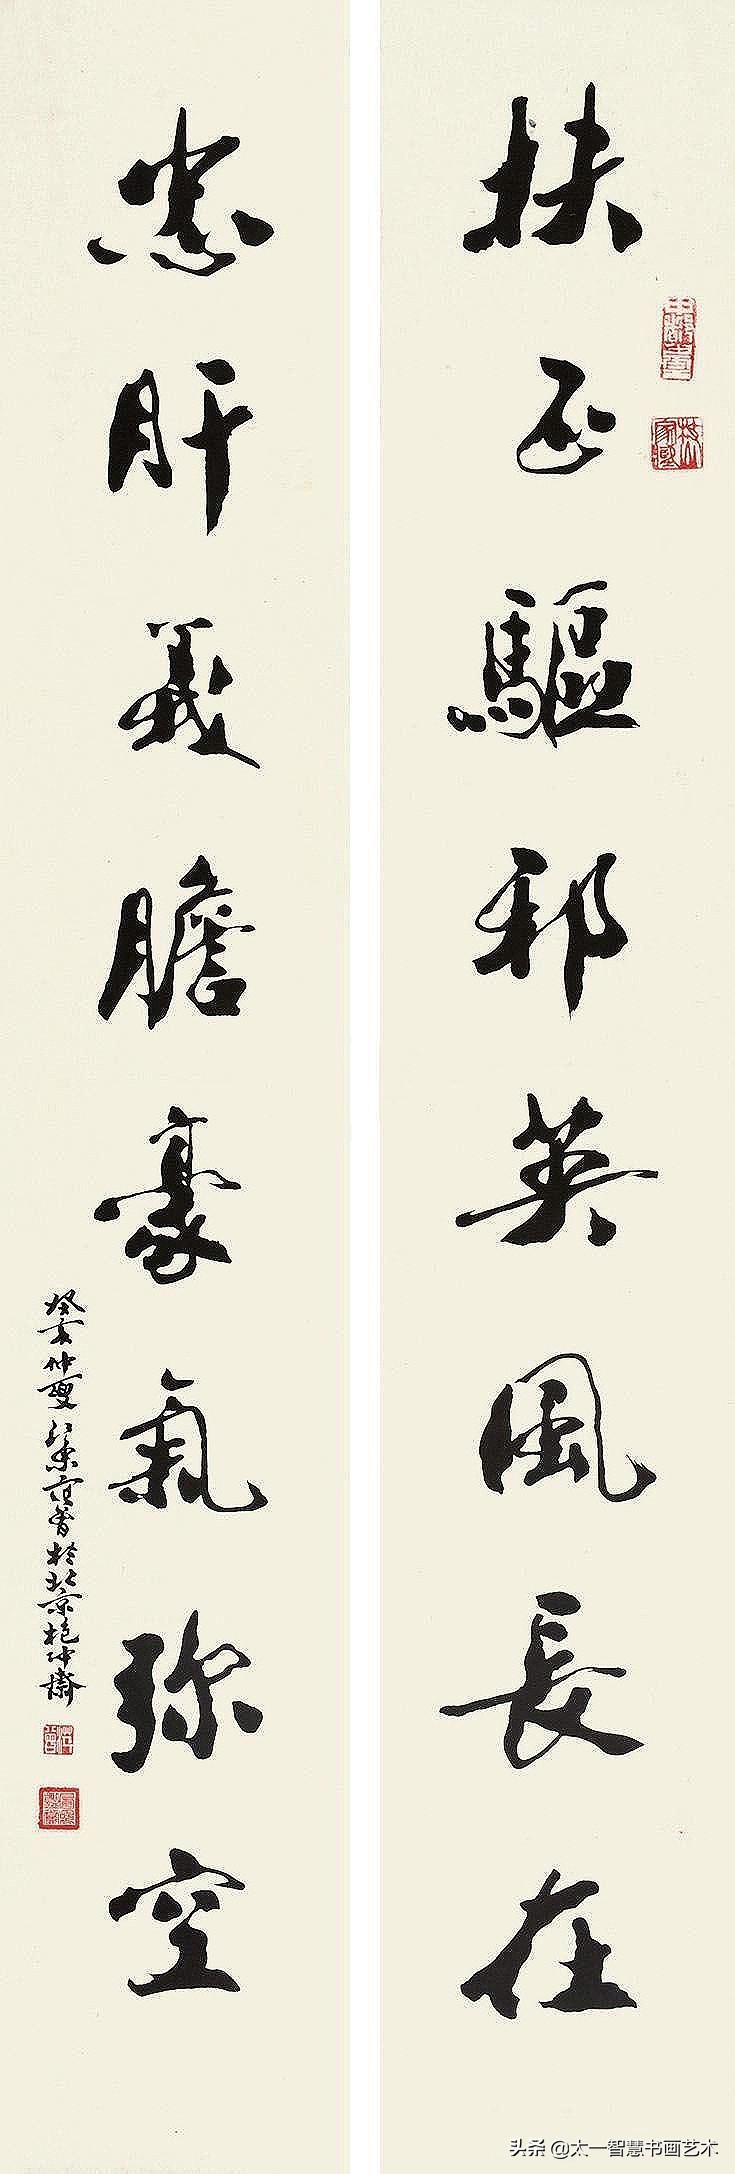 扶正驅邪英風長在
忠肝義膽豪氣弥空
癸亥仲夏江東范曾於北京抱冲齋
头条 @太一智慧书画艺术